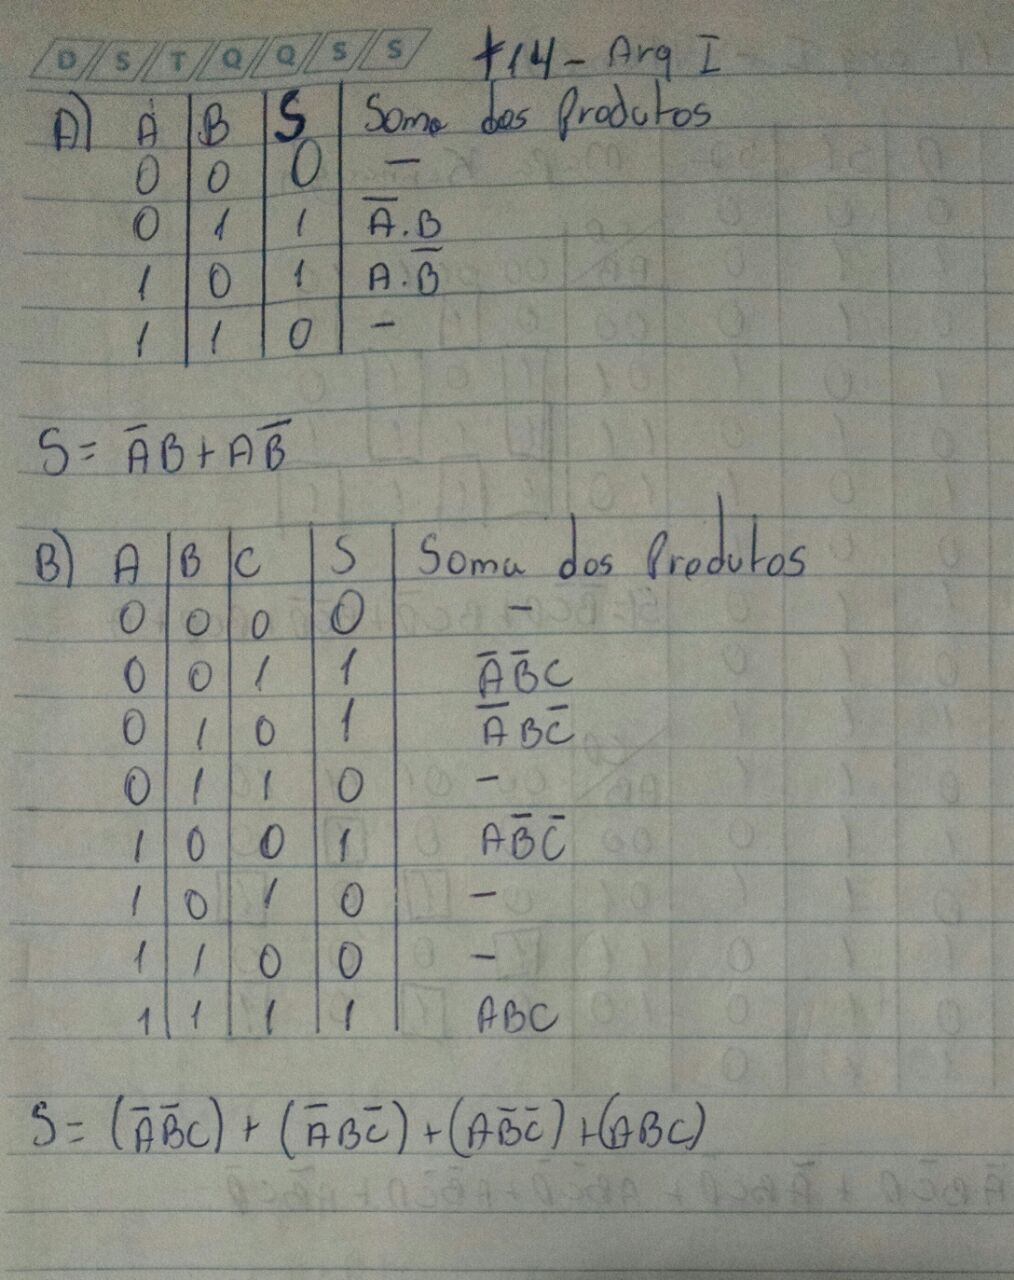 D S T Q Q S S
t14 - Arq I
A) A B S Soma dos Produtos
0 0 0 -
0 1 1 A̅.B
1 0 1 A.B̅
1 1 0 -
S = A̅B + AB̅
B) A B C S Soma dos Produtos
0 0 0 0 -
0 0 1 1 A̅B̅C
0 1 0 1 A̅BC̅
0 1 1 0 -
1 0 0 1 AB̅C̅
1 0 1 0 -
1 1 0 0 -
1 1 1 1 ABC
S = (A̅B̅C) + (A̅BC̅) + (AB̅C̅) + (ABC)